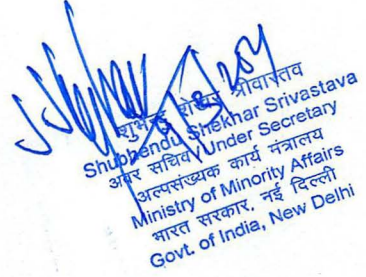 शुभेन्दु शेखर श्रीवास्तव
Shubhendu Shekhar Srivastava
अवर सचिव/Under Secretary
अल्पसंख्यक कार्य मंत्रालय
Ministry of Minority Affairs
भारत सरकार, नई दिल्ली
Govt. of India, New Delhi